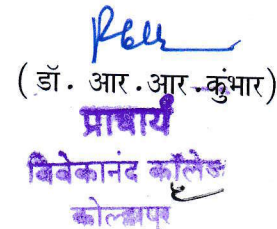 ( डॉ. आर.आर.कुंभार)
प्राचार्य
विवेकानंद कॉलेज
कोल्हापूर